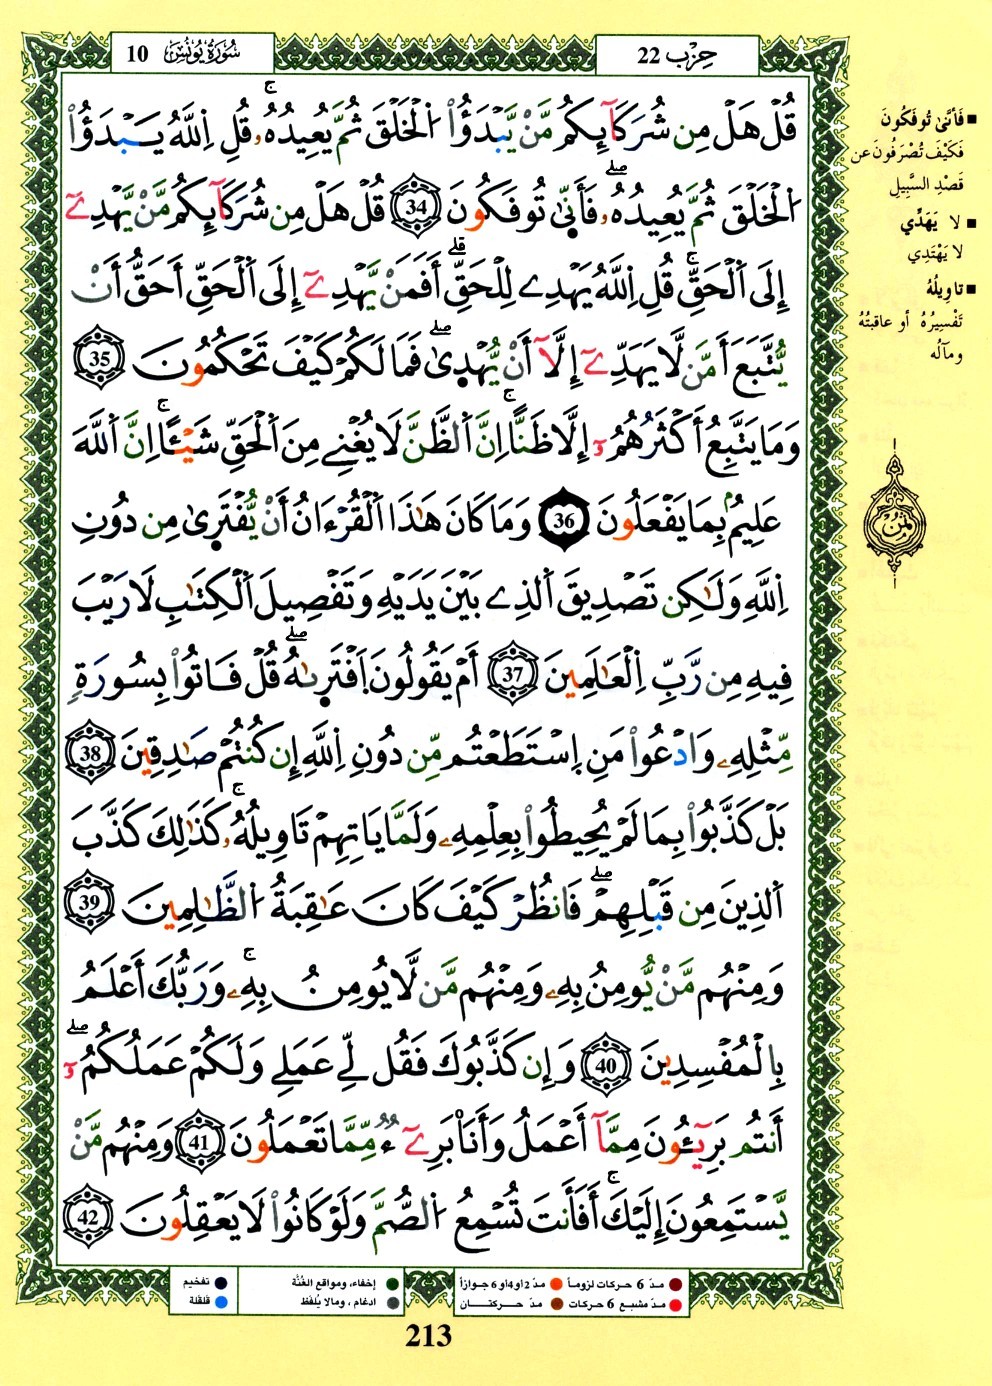 حِزْب 22
سُورَةُ يُونُسَ 10
قُلْ هَلْ مِن شُرَكَآئِكُم مَّنْ يَّبْدَؤُاْ اُ۬لْخَلْقَ ثُمَّ يُعِيدُهُۥۚ قُلِ اِ۬للَّهُ يَبْدَؤُاْ
اُ۬لْخَلْقَ ثُمَّ يُعِيدُهُۥۖ فَأَنّ۪يٰ تُوفَكُونَ 34 قُلْ هَلْ مِن شُرَكَآئِكُم مَّنْ يَّهْدِےٓ
إِلَى اَ۬لْحَقِّۚ قُلِ اِ۬للَّهُ يَهْدِے لِلْحَقِّۗ أَفَمَنْ يَّهْدِےٓ إِلَى اَ۬لْحَقِّ أَحَقُّ أَنْ
يُّتَّبَعَ أَمَّن لَّا يَهَدِّےٓ إِلَّآ أَنْ يُّهْد۪يٰۖ فَمَا لَكُمْ كَيْفَ تَحْكُمُونَ 35
وَمَا يَتَّبِعُ أَكْثَرُهُمُۥٓ إِلَّا ظَنّاًۚ اِنَّ اَ۬لظَّنَّ لَا يُغْنِے مِنَ اَ۬لْحَقِّ شَيْـٔاًۚ اِنَّ اَ۬للَّهَ
عَلِيمُۢ بِمَا يَفْعَلُونَ 36 وَمَا كَانَ هَٰذَا اَ۬لْقُرْءَانُ أَنْ يُّفْتَر۪يٰ مِن دُونِ
اِ۬للَّهِ وَلَٰكِن تَصْدِيقَ اَ۬لذِے بَيْنَ يَدَيْهِ وَتَفْصِيلَ اَ۬لْكِتَٰبِ لَا رَيْبَ
فِيهِ مِن رَّبِّ اِ۬لْعَٰلَمِينَ 37 أَمْ يَقُولُونَ اَ۪فْتَر۪يٰهُۖ قُلْ فَاتُواْ بِسُورَةٖ
مِّثْلِهِۦ وَادْعُواْ مَنِ اِ۪سْتَطَعْتُم مِّن دُونِ اِ۬للَّهِ إِن كُنتُمْ صَٰدِقِينَ 38
بَلْ كَذَّبُواْ بِمَا لَمْ يُحِيطُواْ بِعِلْمِهِۦ وَلَمَّا يَاتِهِمْ تَاوِيلُهُۥۚ كَذَٰلِكَ كَذَّبَ
اَ۬لذِينَ مِن قَبْلِهِمْۖ فَانظُرْ كَيْفَ كَانَ عَٰقِبَةُ اُ۬لظَّٰلِمِينَ 39
وَمِنْهُم مَّنْ يُّومِنُ بِهِۦ وَمِنْهُم مَّن لَّا يُومِنُ بِهِۦۚ وَرَبُّكَ أَعْلَمُ
بِالْمُفْسِدِينَ 40 وَإِن كَذَّبُوكَ فَقُل لِّے عَمَلِے وَلَكُمْ عَمَلُكُمُۥٓۖ
أَنتُم بَرِيٓـُٔونَ مِمَّآ أَعْمَلُ وَأَنَا بَرِےٓءٞ مِّمَّا تَعْمَلُونَ 41 وَمِنْهُم مَّنْ
يَّسْتَمِعُونَ إِلَيْكَۚ أَفَأَنتَ تُسْمِعُ اُ۬لصُّمَّ وَلَوْ كَانُواْ لَا يَعْقِلُونَ 42
■ فَأَنَّىٰ تُوفَكُونَ
فَكَيْفَ تُصْرَفُونَ عن
قَصْدِ السَّبِيلِ
■ لا يَهَدِّي
لا يَهْتَدِي
■ تاوِيلُهُ
تَفْسِيرُهُ أو عاقبتُهُ
ومآلُه
ثُمُن
مدّ 6 حركات لزوماً مدّ 2 أو 4 أو 6 جوازاً
مدّ مشبع 6 حركات مدّ حركتــان
إخفاء، ومواقع الغُنَّة
ادغام ، ومالا يُلفَظ
تفخيم
قلقلة
213